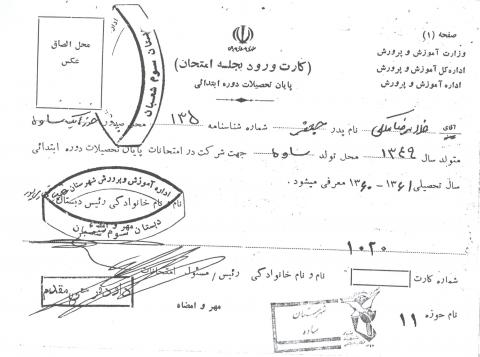 صفحه (۱)
وزارت آموزش و پرورش
اداره کل آموزش و پرورش
اداره آموزش و پرورش
(کارت ورود بجلسه امتحان)
پایان تحصیلات دوره ابتدائی
محل الصاق
عکس
دبستان سوم شعبان
آقای غلامرضا ملکی نام پدر جعفر شماره شناسنامه ۱۳۵ محل صدور
متولد سال ۱۳۴۹ محل تولد ساوه جهت شرکت در امتحانات پایان تحصیلات دوره ابتدائی
سال تحصیلی ۱۳۶۱-۱۳۶۰ معرفی میشود.
اداره آموزش و پرورش شهرستان
نام و نام خانوادگی رئیس دبستان
مهر و امضاء
دبستان سوم شعبان
۱۰۲۰
شماره کارت
نام و نام خانوادگی رئیس/مسئول امتحانات
مهر و امضاء
مقدم
نام حوزه ۱۱
شهرستان
ساوه